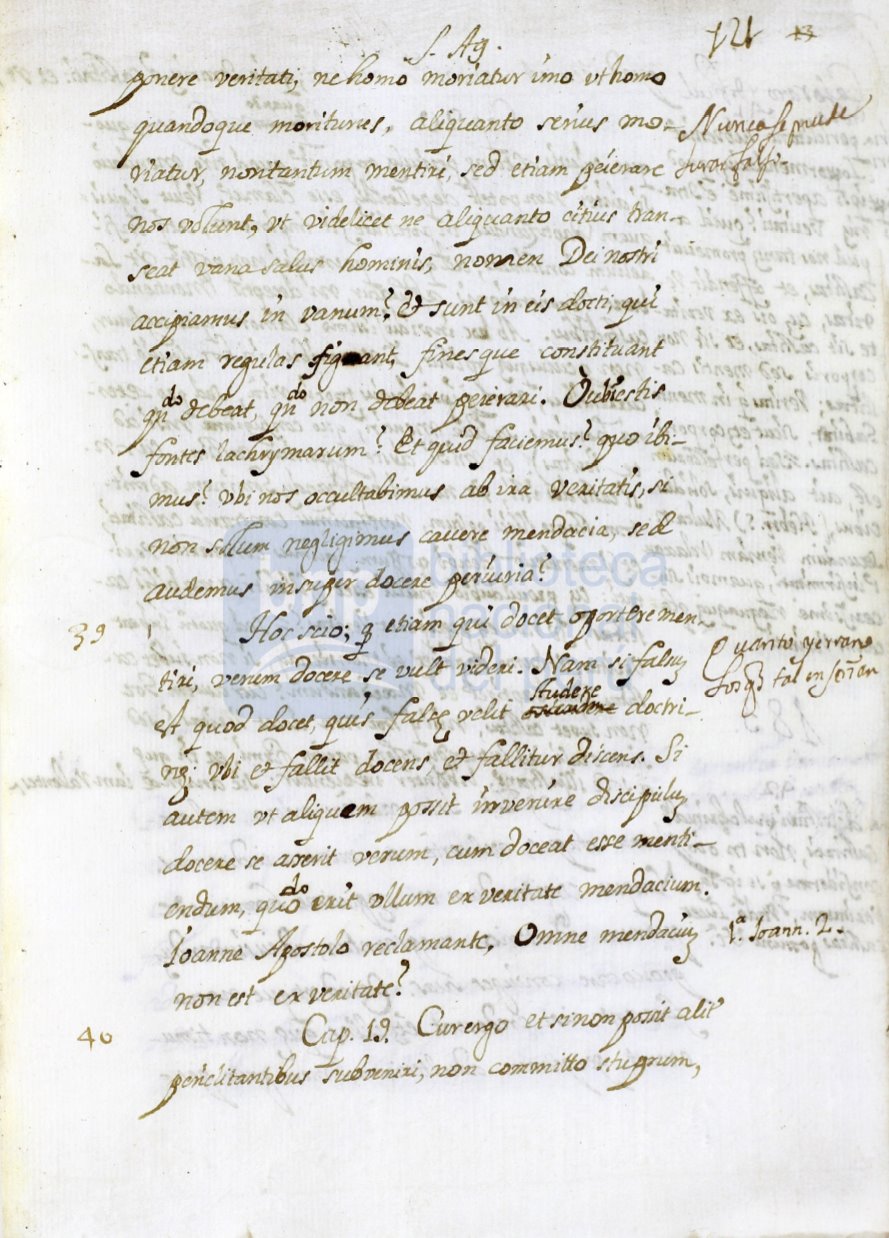 S. Ag.
121 13
ponere veritati, ne homo moriatur imo vt homo
quandoque moriturus, aliquanto serius mo-
riatur, non tantum mentiri, sed etiam peierare
nos volunt, vt videlicet ne aliquanto citius tran-
seat vana salus hominis, nomen Dei nostri
accipiamus in vanum? Et sunt in eis docti, qui
etiam regulas figant, finesque constituant
qn̄do debeat, qn̄do non debeat peierari. O ubi estis
fontes lachrymarum? Et quid faciemus? quo ibi-
mus? vbi nos occultabimus ab ira veritatis, si
non solum negligimus cavere mendacia, sed
audemus insuper docere periuria?
Nunca se puede
jurar falso.
39
Hoc scio; q etiam qui docet oportere men-
tiri, verum docere se vult videri. Nam si falsuz
est quod docet, quis falsę velit studere doctri-
nę; vbi et fallit docens et fallitur discens. Si
autem vt aliquem possit invenire discipuluz
docere se aserit verum, cum doceat esse menti-
endum, quodo erit vllum ex veritate mendacium.
Ioanne Apostolo reclamante, Omne mendaciuz
non est ex veritate?
Quanto yerran
los qs tal enseñan
1.a Ioann. 2.
40
Cap. 19. Cur ergo et si non possit alit'
periclitantibus subveniri, non committo stuprum,
biblioteca
nacional
del perú